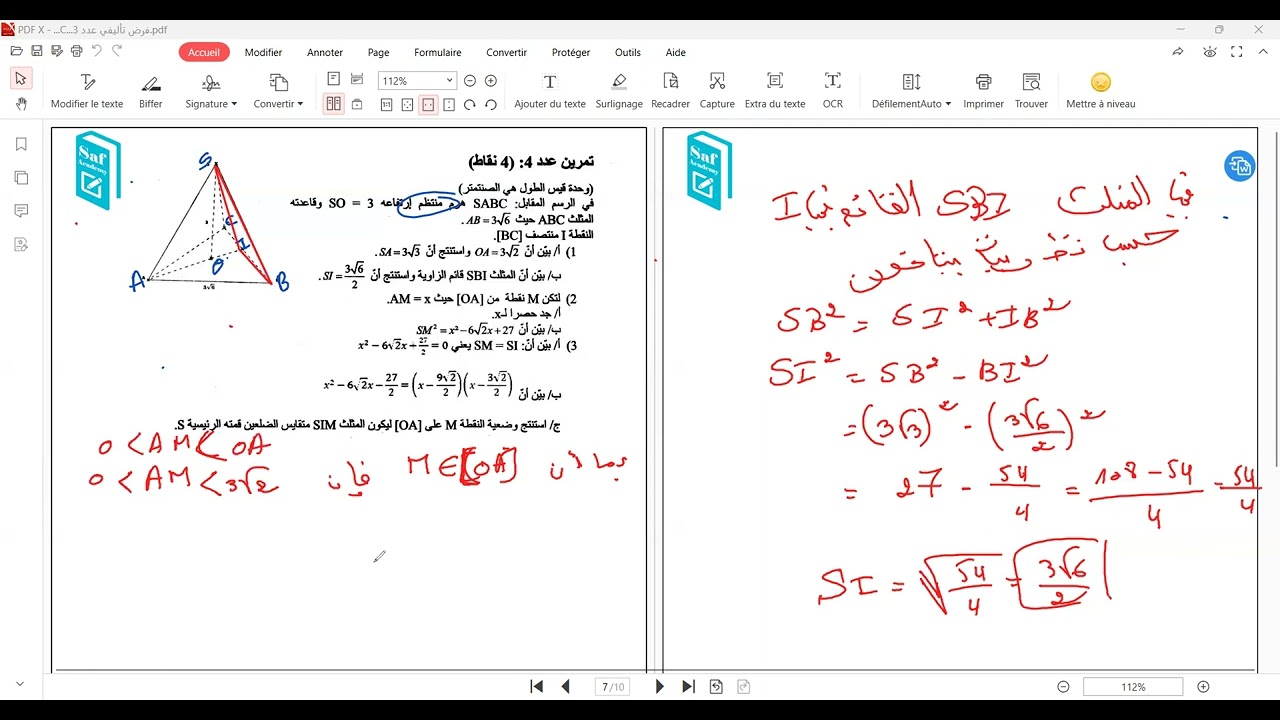 PDF X - ...C...3 فرض تأليفي عدد.pdf
Accueil Modifier Annoter Page Formulaire Convertir Protéger Outils Aide
112%
Modifier le texte Biffer Signature Convertir Ajouter du texte Surlignage Recadrer Capture Extra du texte OCR DéfilementAuto Imprimer Trouver Mettre à niveau
Saf
Academy
تمرين عدد 4: (4 نقاط)
(وحدة قيس الطول هي الصنتمتر)
في الرسم المقابل: SABC هرم منتظم إرتفاعه SO = 3 وقاعدته
المثلث ABC حيث AB = 3√6.
النقطة I منتصف [BC].
1) أ/ بيّن أنّ OA = 3√2 واستنتج أنّ SA = 3√3.
ب/ بيّن أنّ المثلث SBI قائم الزاوية واستنتج أنّ SI = 3√6/2.
2) لتكن M نقطة من [OA] حيث AM = x.
أ/ جد حصرا لـx.
ب/ بيّن أنّ SM² = x² − 6√2x + 27
3) أ/ بيّن أنّ: SM = SI يعني x² − 6√2x + 27/2 = 0
ب/ بيّن أنّ x² − 6√2x − 27/2 = (x − 9√2/2)(x − 3√2/2)
ج/ استنتج وضعية النقطة M على [OA] ليكون المثلث SIM متقايس الضلعين قمته الرئيسية S.
S
C
I
O
A
B
3√6
بما أن M ∈ [OA]
فإن
0 < AM < OA
0 < AM < 3√2
Saf
Academy
في المثلث SBI القائم في I
حسب نظرية بيتاغور
SB² = SI² + IB²
SI² = SB² − BI²
= (3√3)² − (3√6/2)²
= 27 − 54/4 = 108 − 54/4 = 54/4
SI = √54/4 = 3√6/2
7 /10
112%